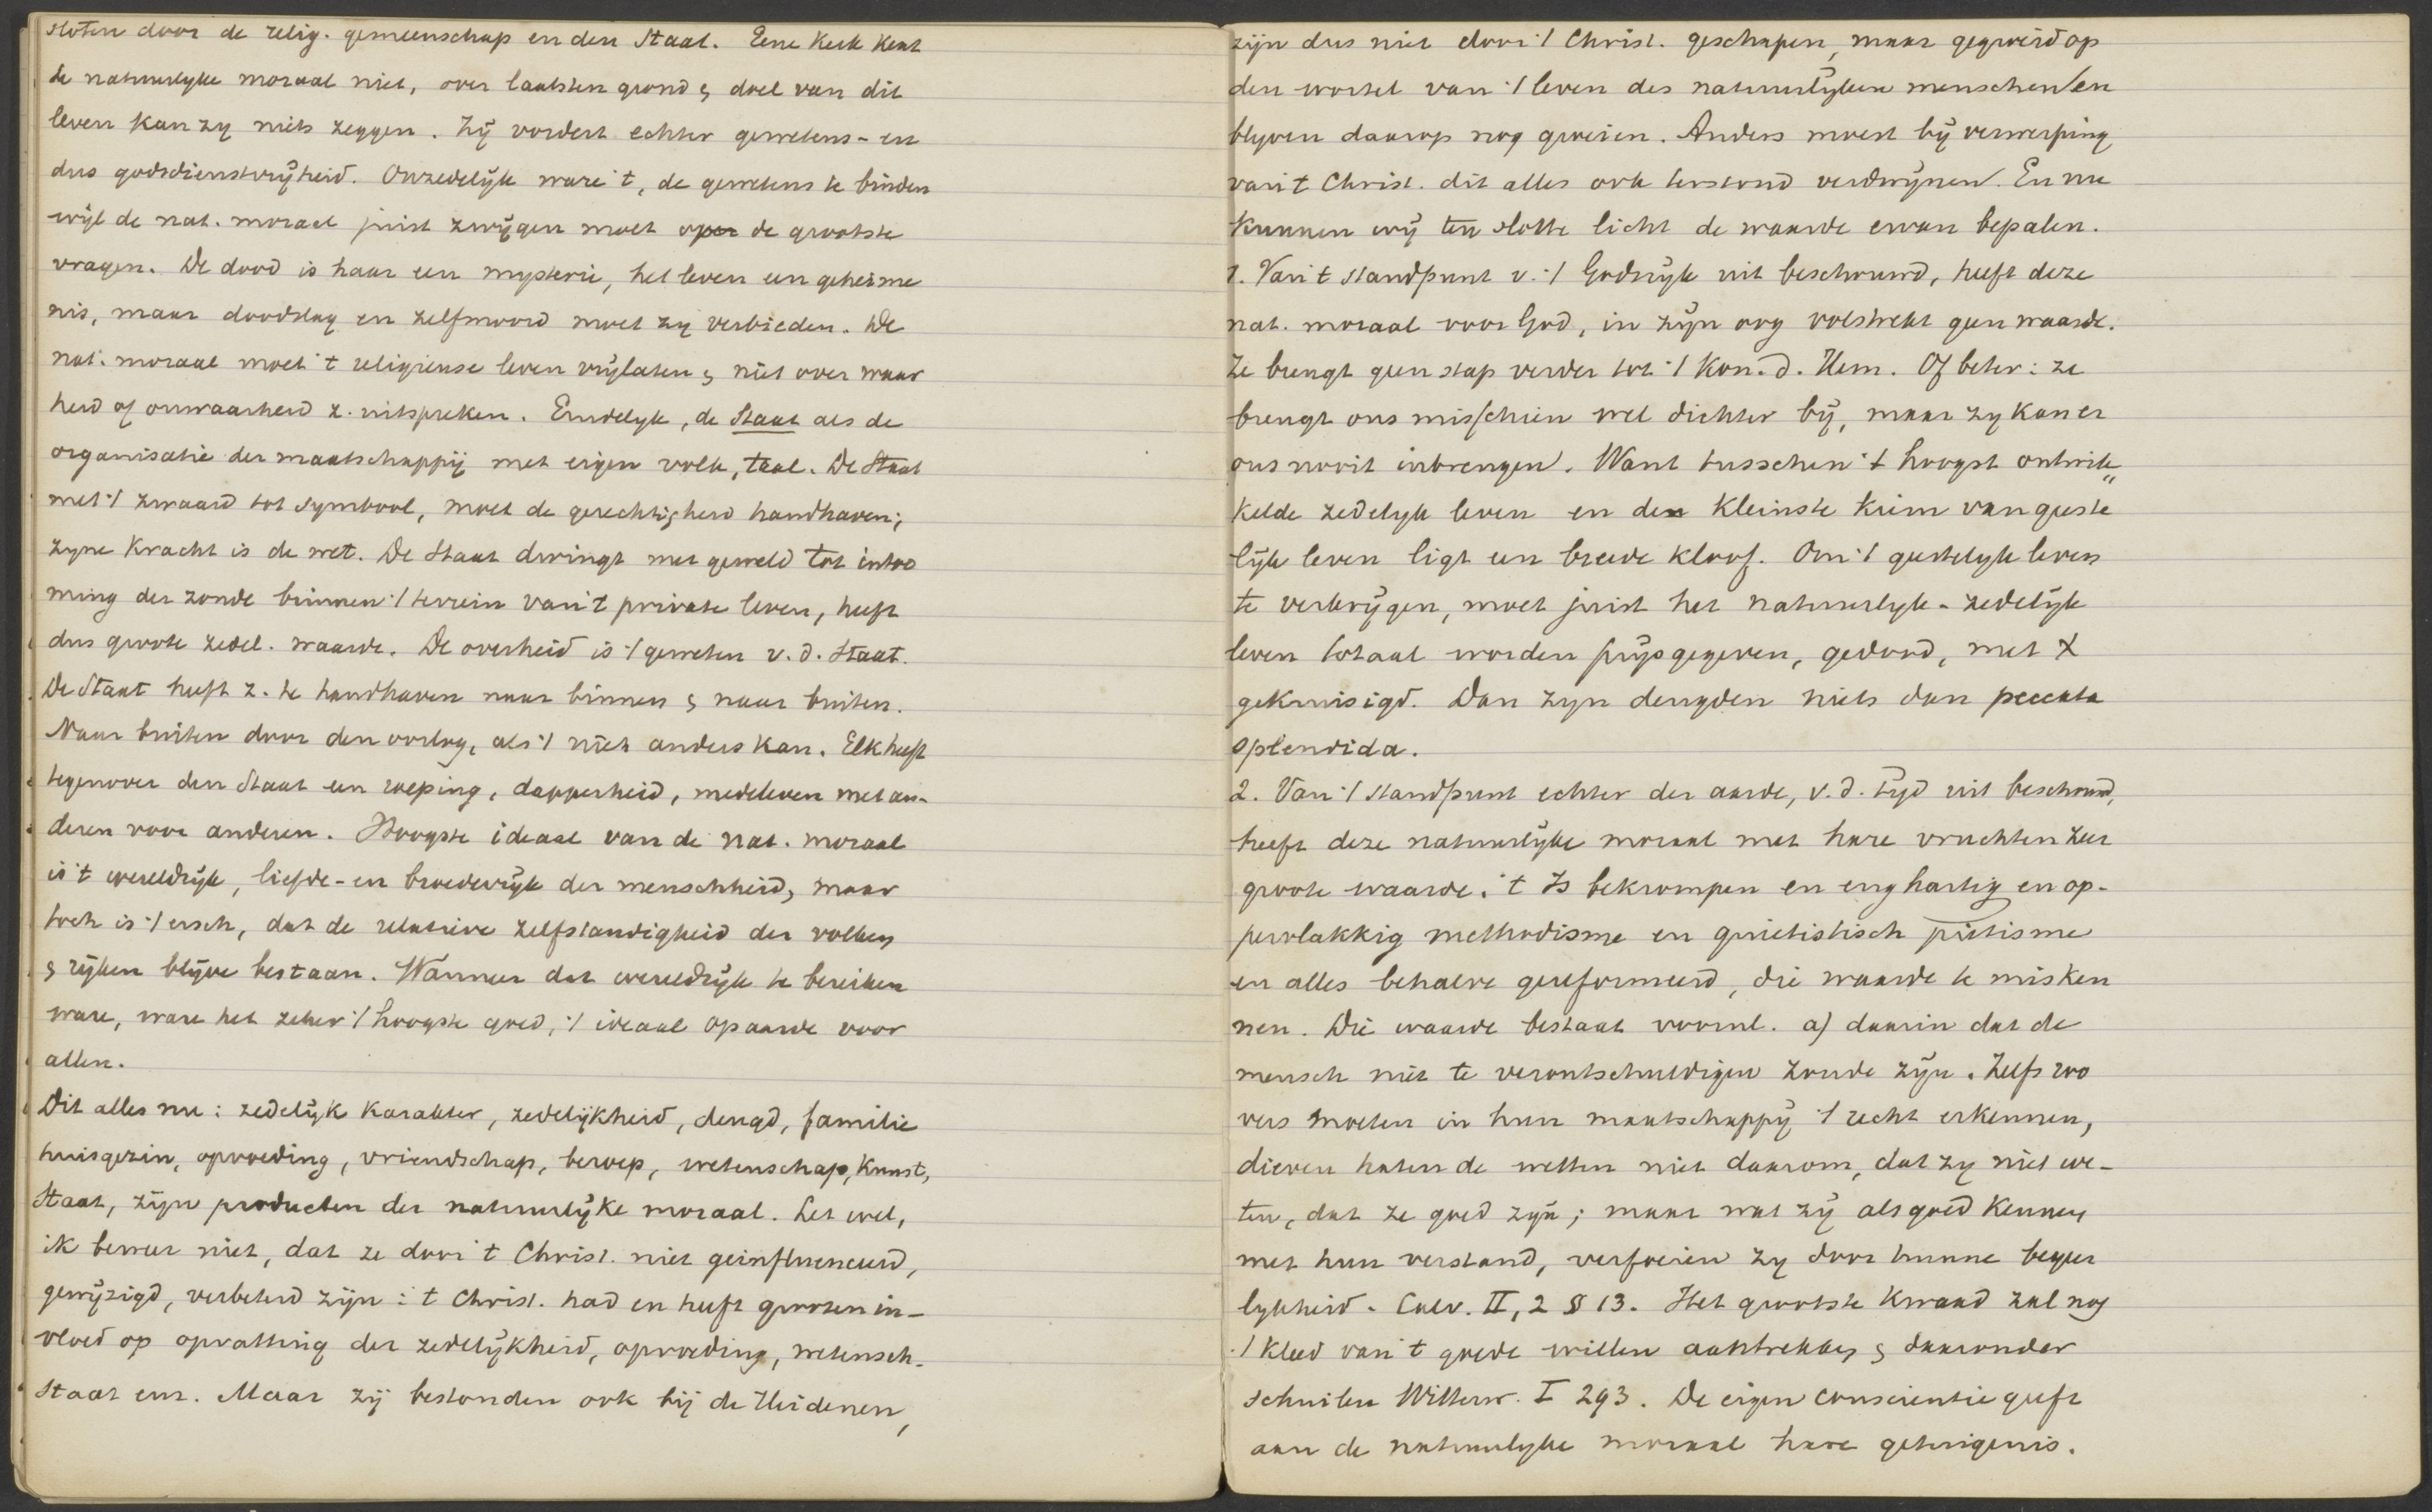 sloten door de relig. gemeenschap en den Staat. Eene Kerk kent
de natuurlyke moraal niet, over laatsten grond & doel van dit
leven kan zy niets zeggen. Zij vordert echter gewetens- en
dus godsdienstvrijheid. Onzedelijk ware 't, de gewetens te binden
wijl de nat. moraal juist zwijgen moet op de grootste
vragen. De dood is haar een mysterie, het leven een geheime
nis, maar doodslag en zelfmoord moet zy verbieden. De
nat. moraal moet 't religieuse leven vrijlaten & niet over waar
heid of onwaarheid z. uitspreken. Eindelyk, de Staat als de
organisatie der maatschappij met eigen volk, taal. De Staat
met 't zwaard tot symbool, moet de gerechtigheid handhaven;
zyne Kracht is de wet. De Staat dwingt met geweld tot intoo
ming der zonde binnen 't terrein van 't private leven, heeft
dus groote zedel. waarde. De overheid is 't geweten v. d. Staat.
De Staat heeft z. te handhaven naar binnen & naar buiten.
Naar buiten door den oorlog, als 't niet anders kan. Elk heeft
tegenover den Staat een roeping, dapperheid, medeleven met an-
deren voor anderen. Hoogste ideaal van de nat. moraal
is 't wereldrijk, liefde- en broederrijk der menschheid, maar
toch is 't eisch, dat de relatieve zelfstandigheid der volken
& rijken blijve bestaan. Wanneer dat wereldrijk te bereiken
ware, ware het zeker 't hoogste goed, 't ideaal op aarde voor
allen.
Dit alles nu: zedelijk karakter, zedelijkheid, deugd, familie
huisgezin, opvoeding, vriendschap, beroep, wetenschap, Kunst,
Staat, zijn producten der natuurlijke moraal. Let wel,
ik beweer niet, dat ze door 't Christ. niet geinfluenceerd,
gewijzigd, verbeterd zijn: 't Christ. had en heeft grooten in-
vloed op opvatting der zedelijkheid, opvoeding, wetensch.
Staat enz. Maar zij bestonden ook bij de Heidenen,
zijn dus niet door 't Christ. geschapen, maar gegroeid op
den wortel van 't leven des natuurlijken menschen / en
blyven daarop nog groeien. Anders moest bij verwerping
van 't Christ. dit alles ook terstond verdwijnen. En nu
kunnen wij ten slotte licht de waarde ervan bepalen.
1. Van 't standpunt v. 't Godsrijk uit beschouwd, heeft deze
nat. moraal voor God, in zijn oog volstrekt geen waarde.
Ze brengt geen stap verder tot 't Kon. d. Hem. Of beter: ze
brengt ons misschien wel dichter bij, maar zy kan er
ons nooit inbrengen. Want tusschen 't hoogst ontwik„
kelde zedelyk leven en de kleinste kiem van geeste
lijk leven ligt een breede kloof. Om 't geestelyk leven
te verkrijgen, moet juist het natuurlyk-zedelijk
leven totaal worden prijsgegeven, gedood, met X
gekruisigd. Dan zyn deugden niets dan peccata
splendida.
2. Van 't standpunt echter der aarde, v. d. tijd uit beschouwd,
heeft deze natuurlijke moraal met hare vruchten zeer
groote waarde. 't Is bekrompen en enghartig en op-
pervlakkig methodisme en quietistisch pietisme
en alles behalve gereformeerd, die waarde te misken
nen. Die waarde bestaat voornl. a) daarin dat de
mensch niet te verontschuldigen zoude zijn. Zelfs roo
vers moeten in hun maatschappij 't recht erkennen,
dieven haten de wetten niet daarom, dat zy niet we-
ten, dat ze goed zyn; maar wat zij als goed kennen
met hun verstand, verfoeien zy door hunne begeer
lykheid. Calv. II, 2 § 13. Het grootste kwaad zal nog
't kleed van 't goede willen aantrekken & daaronder
schuilen Wittew. I 293. De eigen conscientie geeft
aan de natuurlyke moraal hare getuigenis.